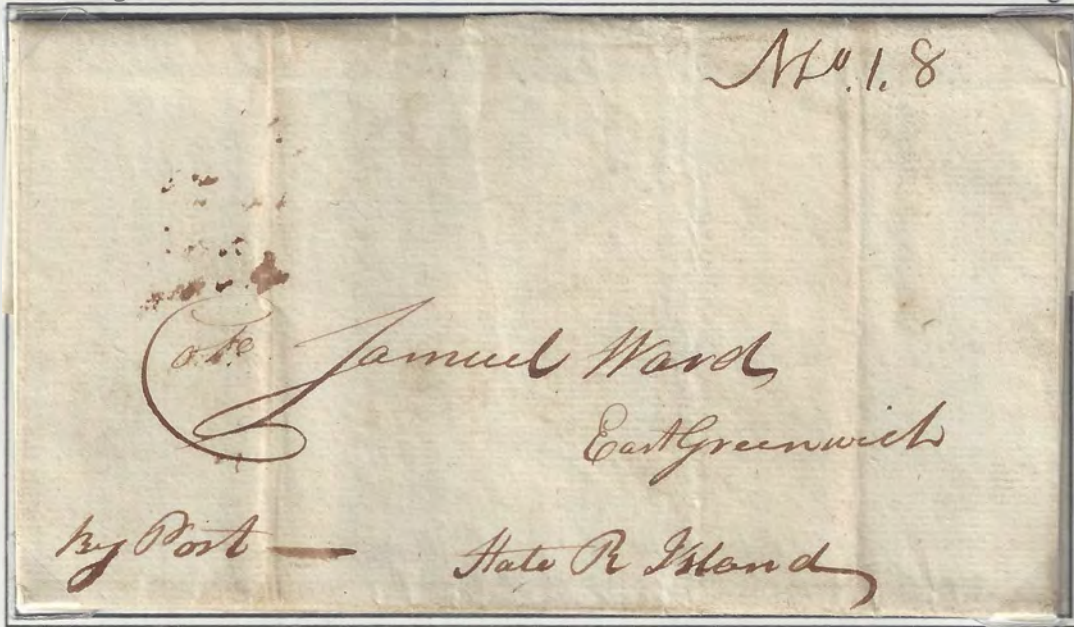 No. 1. 8
Samuel Ward
East Greenwich
By Post —
State R Island